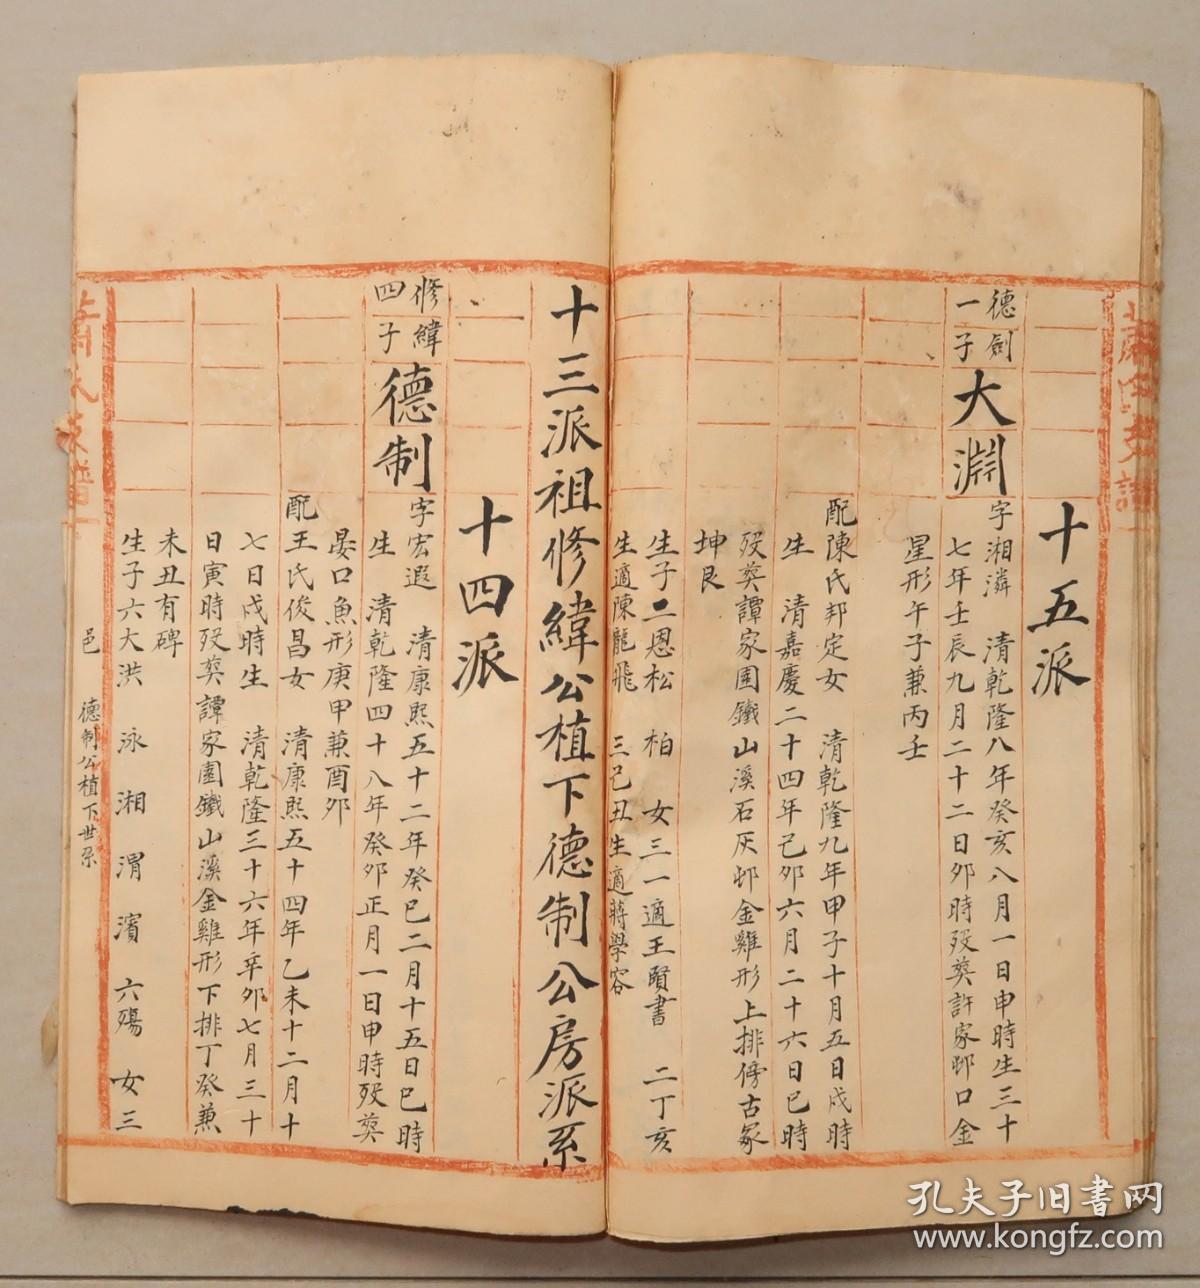 十五派
德劍
一子
大淵
字湘潾 清乾隆八年癸亥八月一日申時生三十
七年壬辰九月二十二日卯時殁塟許家邨口金
星形午子兼丙壬
配陳氏邦定女 清乾隆九年甲子十月五日戌時
生 清嘉慶二十四年己卯六月二十六日巳時
殁塟譚家園鐵山溪石灰邨金雞形上排傍古冢
坤艮
生子二恩松 柏 女三一適王賢書 二丁亥
生適陳龍飛 三己丑生適蔣學容
十三派祖修緯公植下德制公房派系
十四派
修緯
四子
德制
字宏遐 清康熙五十二年癸巳二月十五日巳時
生 清乾隆四十八年癸卯正月一日申時殁塟
晏口魚形庚甲兼酉卯
配王氏俊昌女 清康熙五十四年乙未十二月十
七日戌時生 清乾隆三十六年辛卯七月三十
日寅時殁塟譚家園鐵山溪金雞形下排丁癸兼
未丑有碑
生子六大洪 泳 湘 渭 濱 六殤 女三
蕭氏族譜
邑 德制公植下世系
孔夫子旧书网
www.kongfz.com